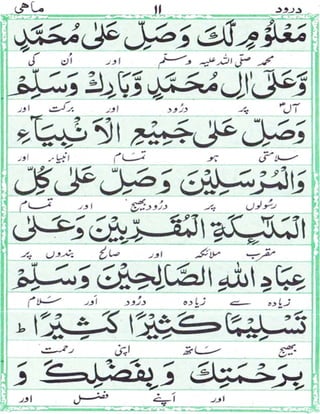 درود ۱۱ ماهی
مَعْلُوْمٍ لَّكَ وَصَلِّ عَلٰى مُحَمَّدٍ
محمد صلی اللہ علیہ وسلم اور اُن کی
وَّعَلٰٓى اٰلِ مُحَمَّدٍ وَّبَارِكْ وَسَلِّمْ
آل پر درُود اور برکت اور
وَصَلِّ عَلٰى جَمِيْعِ الْاَنْبِيَآءِ
سلامتی ہو تمام انبیاء اور
وَالْمُرْسَلِيْنَ وَصَلِّ عَلٰى كُلِّ
رسُولوں پر درُود بھیج اور تمام
الْمَلٰٓئِكَةِ الْمُقَرَّبِيْنَ وَعَلٰى
مقرب ملائکہ اور صالح بندوں پر
عِبَادِ اللهِ الصَّالِحِيْنَ وَسَلِّمْ
زیادہ سے زیادہ درُود اور سلام
تَسْلِيْمًا كَثِيْرًا كَثِيْرًا ط
بھیج ساتھ اپنی رحمت
بِرَحْمَتِكَ وَ بِفَضْلِكَ وَ
اور اپنے فضل اور